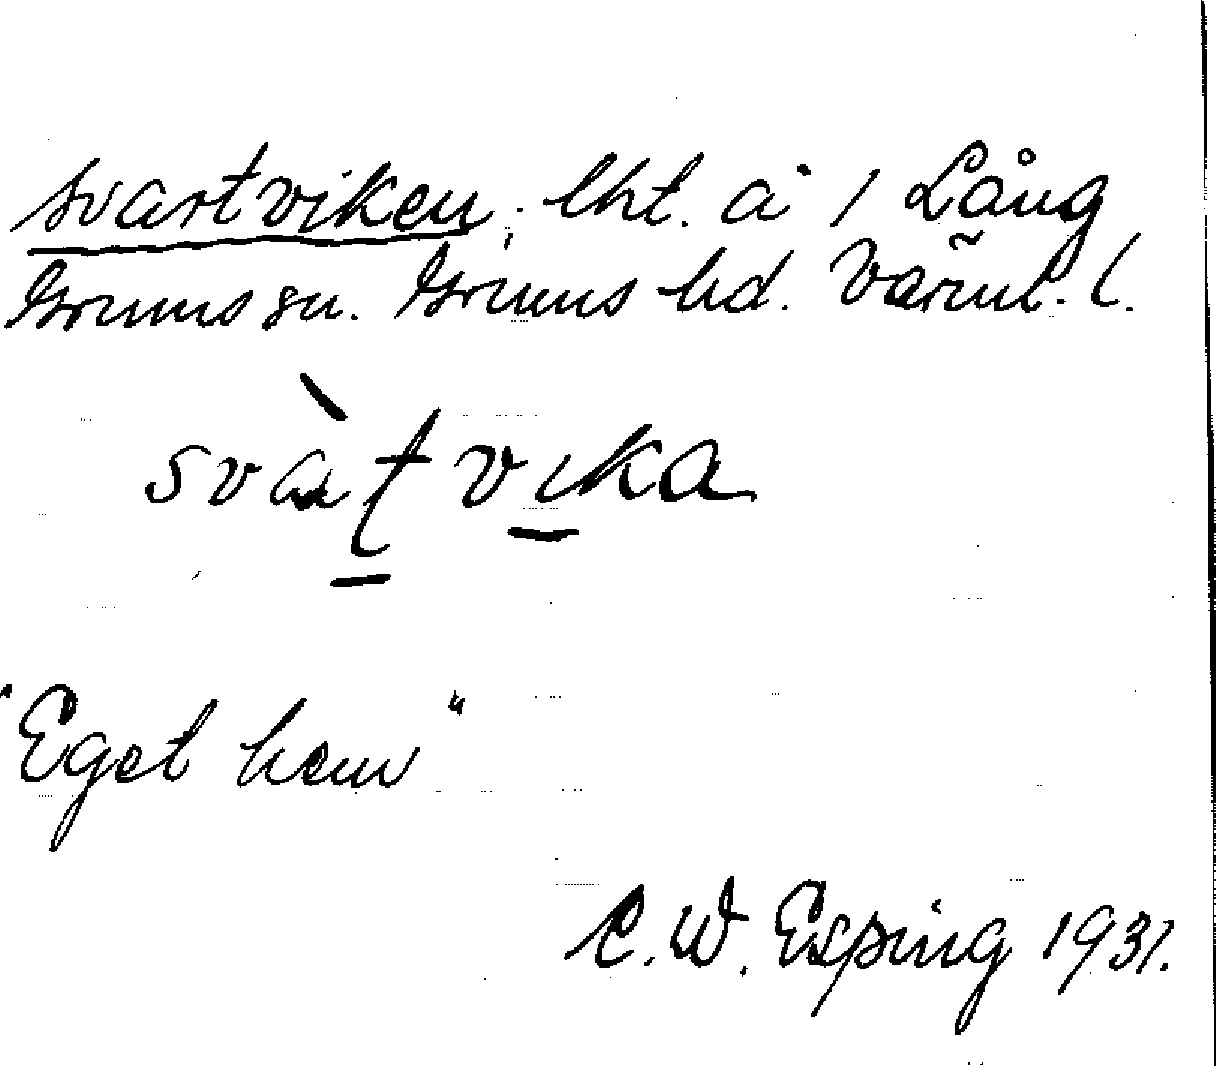 Svartviken, lht. å 1 Lång
Grums sn. Grums hd. Värml. l.
svàt̠ vi̠ka
"Eget hem"
C. W. Esping 1931.